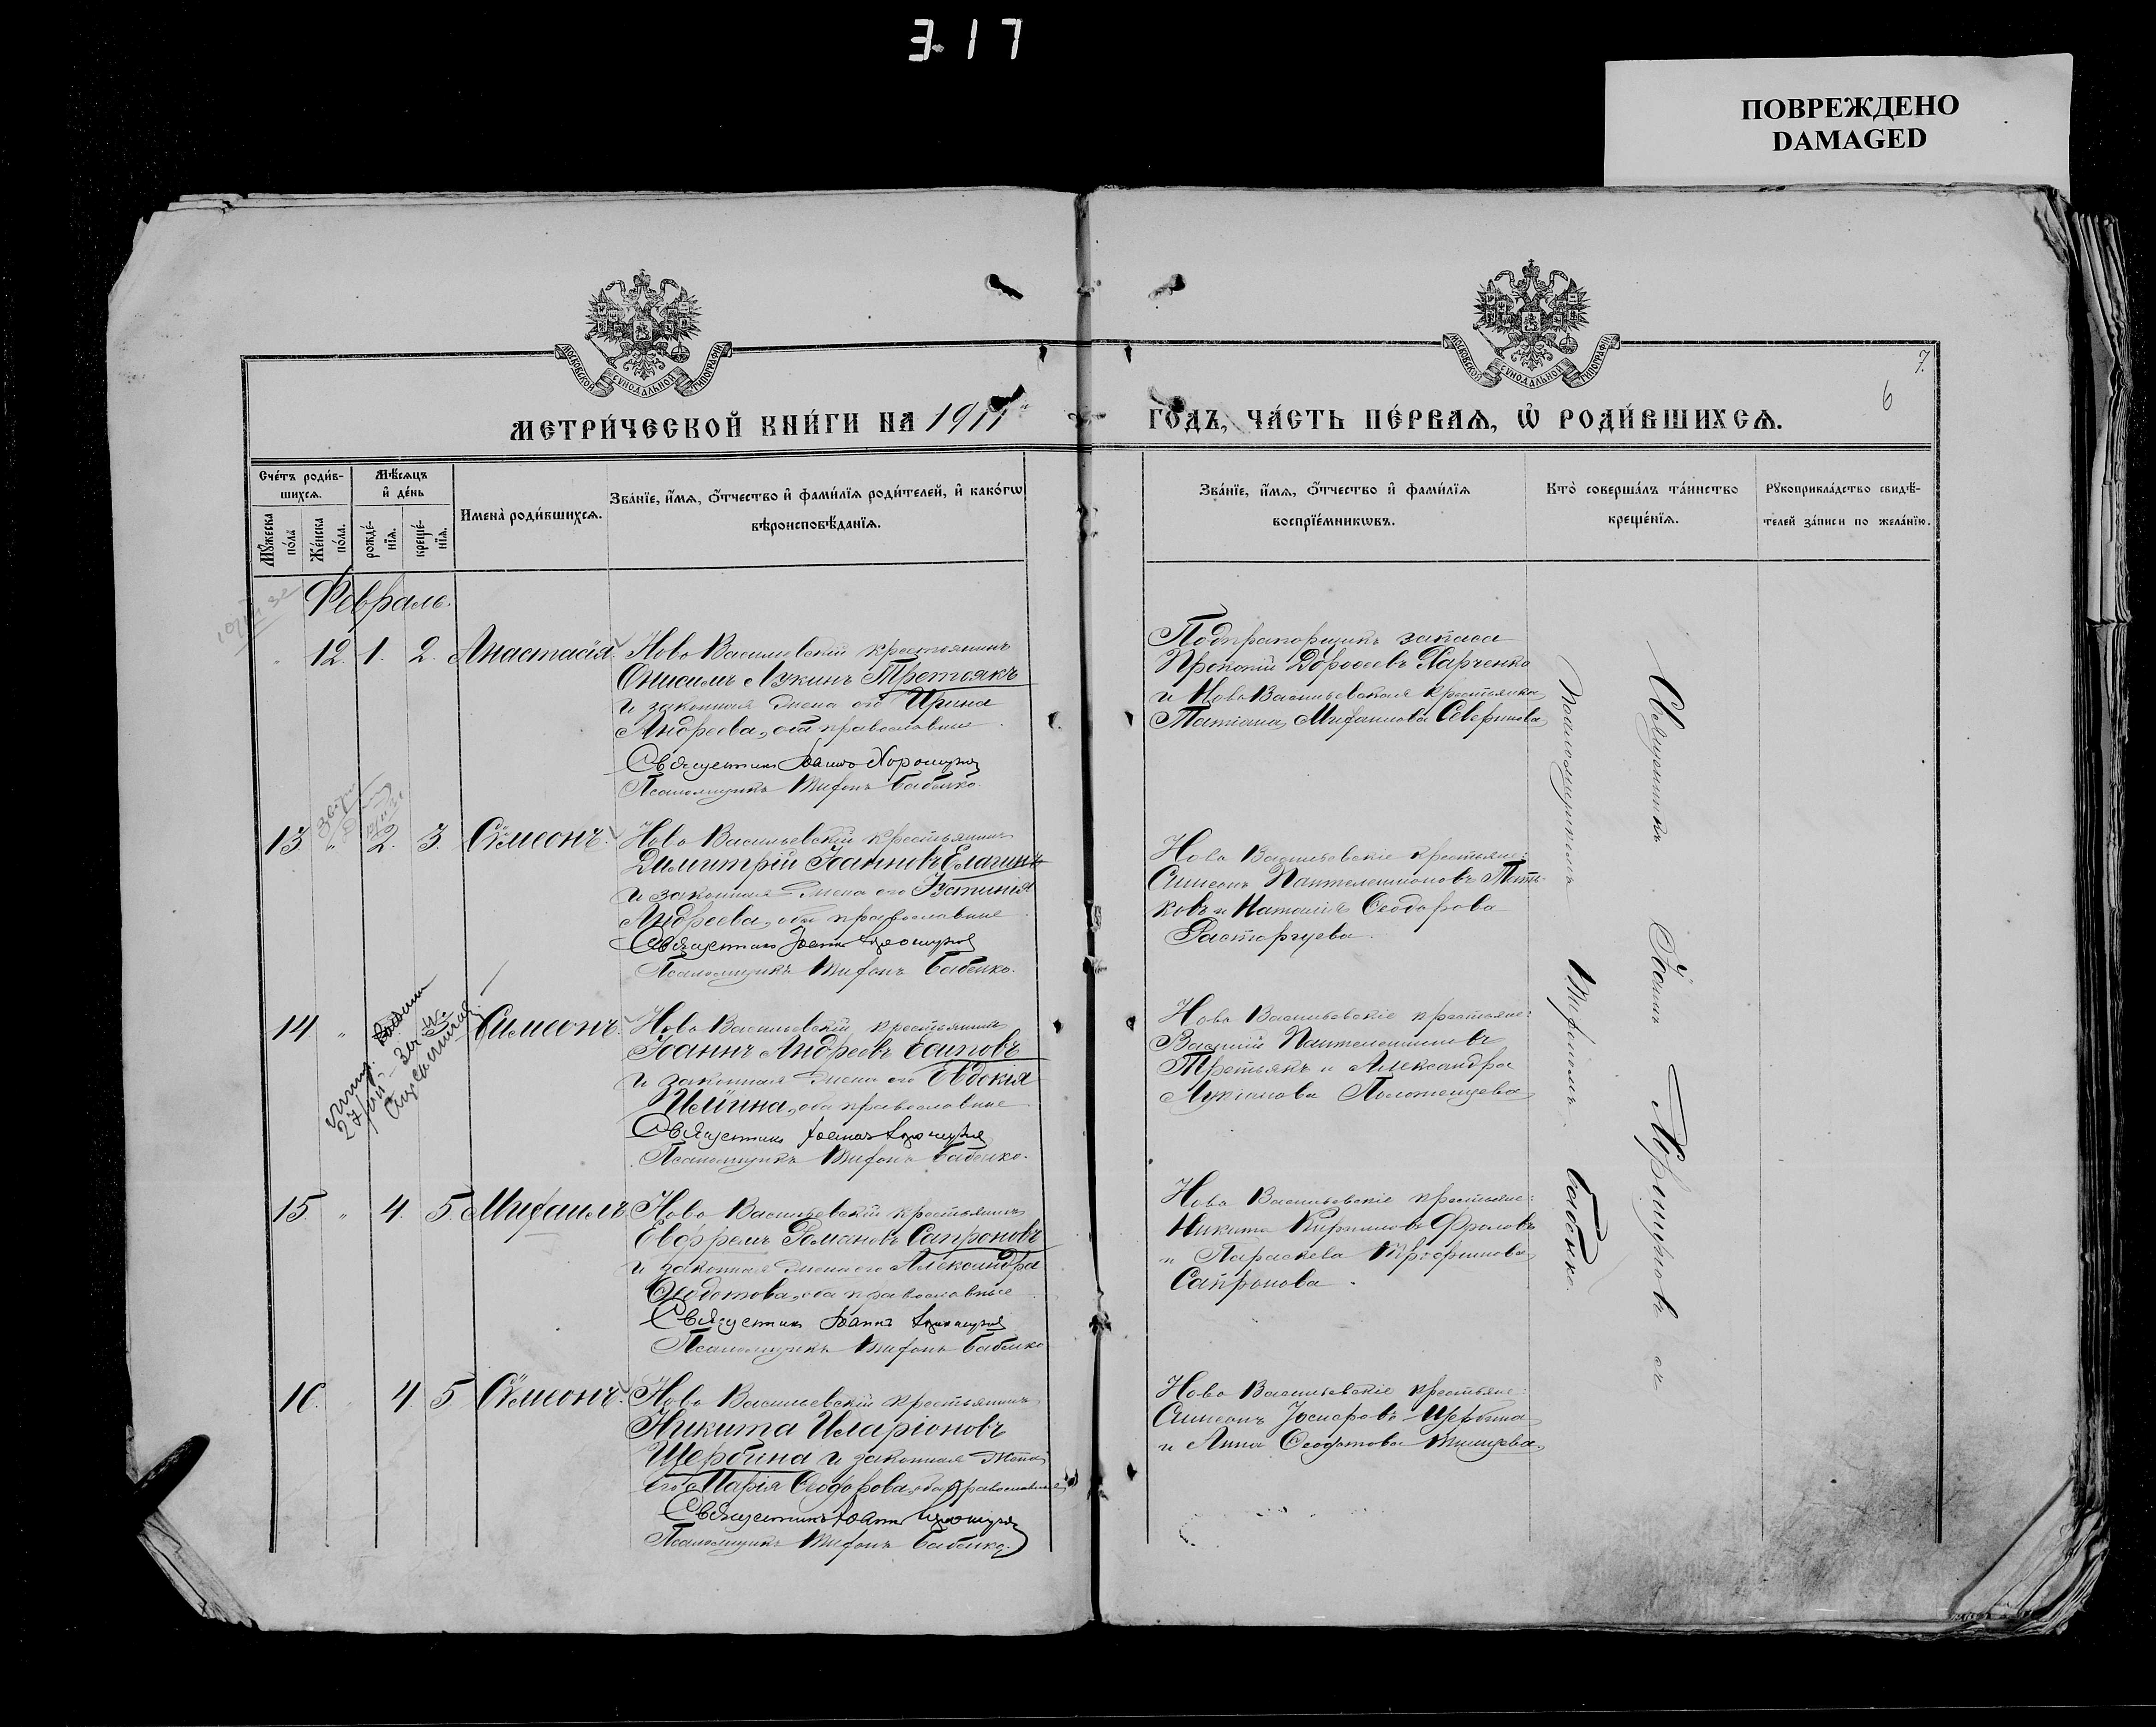 317
ПОВРЕЖДЕНО
DAMAGED
МОСКОВСКОЙ СУНОДАЛЬНОЙ ТИПОГРАФІИ
МОСКОВСКОЙ СУНОДАЛЬНОЙ ТИПОГРАФІИ
7.
6
МЕТРИ́ЧЕСКОЙ КНИ́ГИ НА 1911
ГО́ДЪ, ЧА́СТЬ ПЕ́РВАѦ, Ѡ РОДИ́ВШИХСѦ.
Сче́тъ роди́в-
шихсѧ.
Мꙋ́жеска
по́ла
Же́нска
по́ла.
Мѣ́сѧцъ
и҆ де́нь
рожде́-
нїѧ.
креще́-
нїѧ.
И҆мена̀ роди́вшихсѧ.
Зва́нїе, и҆́мѧ, ѻ҆́тчество и҆ фами́лїѧ роди́телей, и҆ како́гѡ
вѣроисповѣ́данїѧ.
Зва́нїе, и҆́мѧ, ѻ҆́тчество и҆ фами́лїѧ
воспрїе́мникѡвъ.
Кто̀ соверша́лъ та́инство
креще́нїѧ.
Рꙋкоприкла́дство свидѣ́-
телей за́писи по жела́нїю.
Февраль.
12. 1. 2. Анастасія
Ново Васильевскій крестьянинъ
Онисимъ Лукинъ Третьякъ
и законная жена его Ирина
Андреева, оба православные
Священникъ Іоаннъ
Псаломщикъ Тифонъ Бабенко.
Подпрапорщикъ запаса
Прокопій Дороѳеевъ Харченко
и Ново Васильевская крестьянка
Татіана Михаилова Севериновa
13. " 2. 3. Сѵмеонъ.
Ново Васильевскій крестьянинъ
Димитрій Іоанновъ Елагинъ
и законная жена его Фотинія
Андреева, оба православные
Священникъ Іоаннъ
Псаломщикъ Тифонъ Бабенко.
Ново Васильевскіе крестьяне:
Симеонъ Пантелеимоновъ
и Наталія Ѳеодорова
Расторгуева
14. " Симеонъ.
Ново Васильевскій крестьянинъ
Іоаннъ Андреевъ Есиповъ
и законная жена его Евдокія
Иліина, оба православные
Священникъ Іоаннъ
Псаломщикъ Тифонъ Бабенко.
Ново Васильевскіе крестьяне:
Василій Пантелеимоновъ
Третьякъ и Александра
Лукіанова
15. " 4. 5. Михаилъ.
Ново Васильевскій крестьянинъ
Евфремъ Романовъ Сапроновъ
и законная жена его Александра
Ѳеодотова, оба православные
Священникъ Іоаннъ
Псаломщикъ Тифонъ Бабенко
Ново Васильевскіе крестьяне:
Никита Кирилловъ Фроловъ
и Параскева Трофимова
Сапронова.
16. 4. 5 Сѵмеонъ.
Ново Васильевскій крестьянинъ
Никита Иларіоновъ
Щербина и законная жена
его Марія Ѳеодорова, оба православные
Священникъ Іоаннъ
Псаломщикъ Тифонъ Бабенко.
Ново Васильевскіе крестьяне:
Симеонъ Іосифовъ Щербина
и Анна Ѳеодотова
Священникъ Іоаннъ
псаломщикомъ Бабенко.